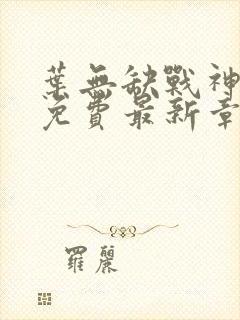 葉無缺戰神
免費最新章
羅麗